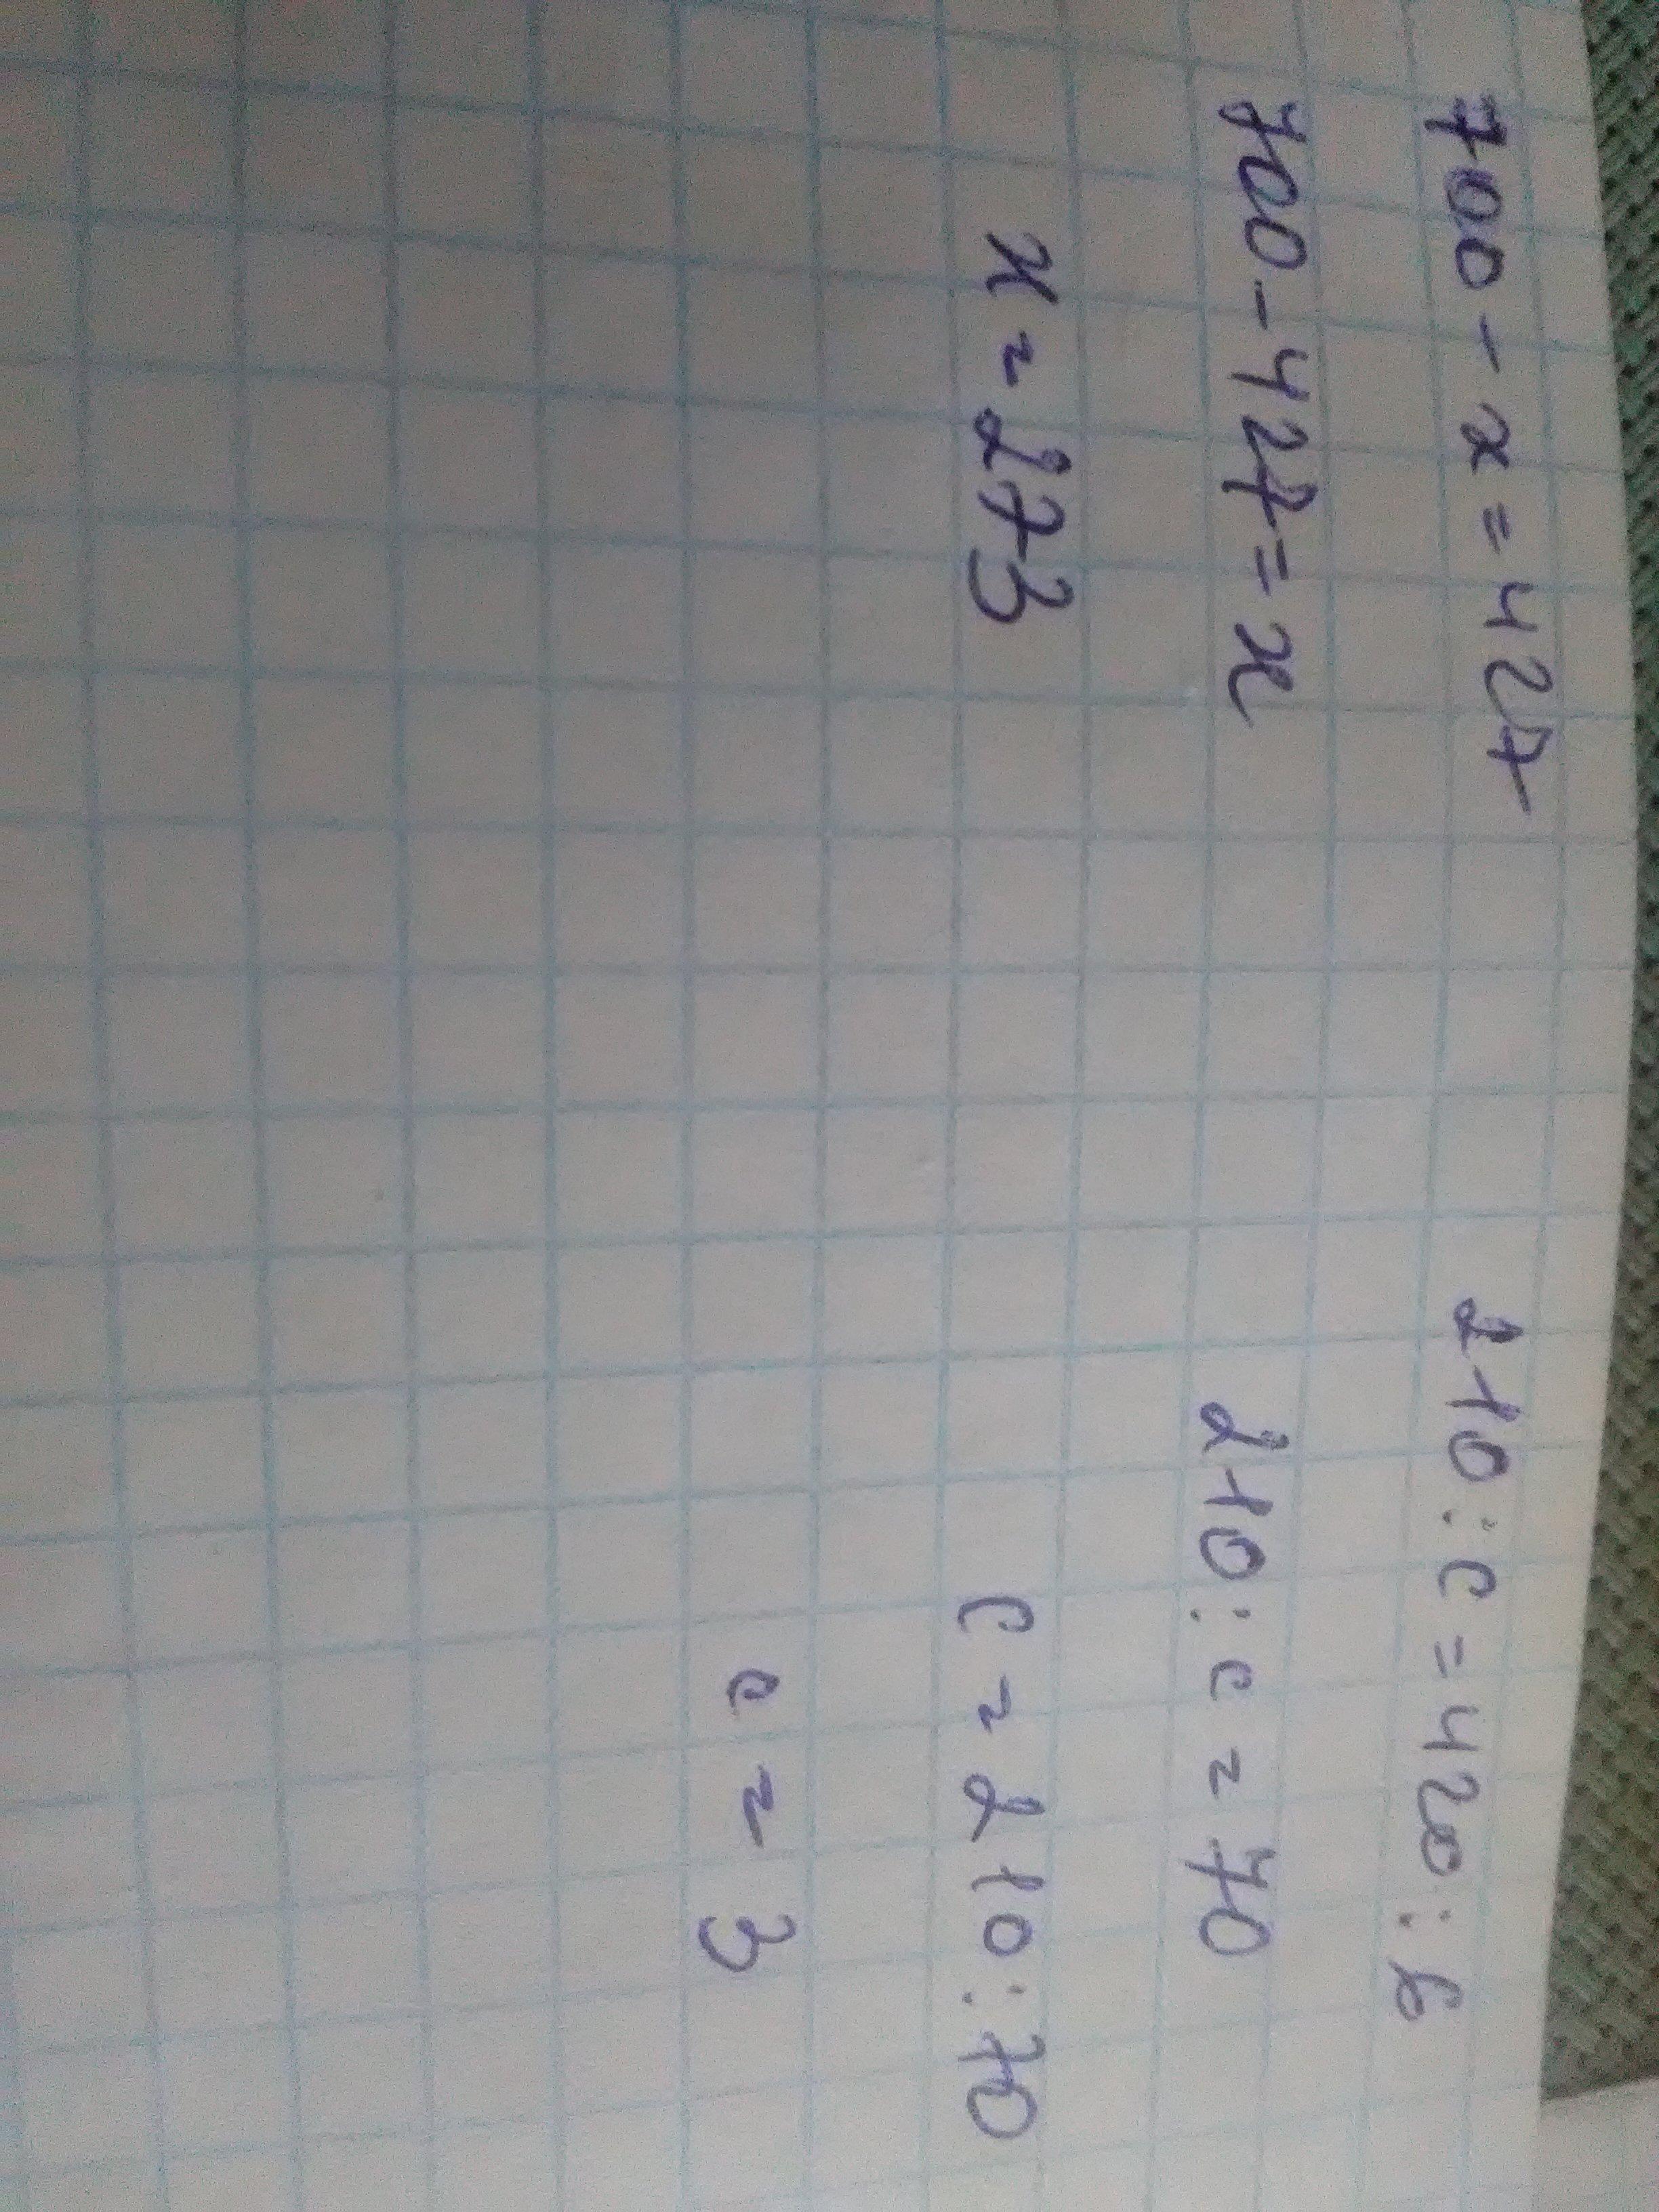 700 - x = 427
700 - 427 = x
x = 273
210 : c = 420 : 6
210 : c = 70
c = 210 : 70
c = 3